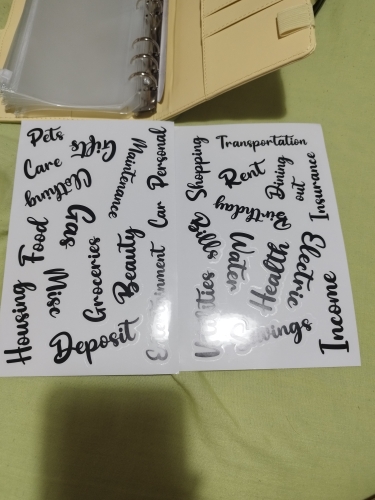 Pets
Gifts
Care
Clothing
Maintenance
Personal
Car
Food
Gas
Misc
Groceries
Beauty
Housing
Deposit
Entertainment
Shopping
Transportation
Rent
Dining
out
Insurance
Birthday
Bills
Water
Health
Electric
Utilities
Savings
Income